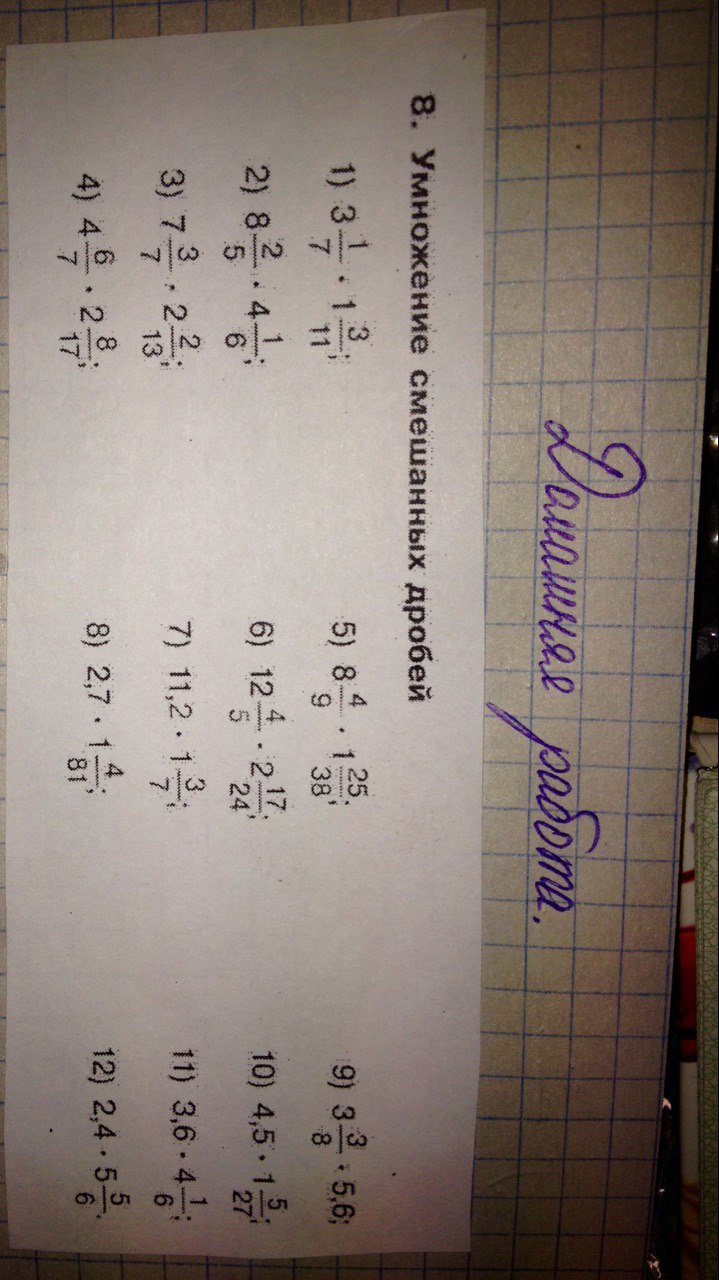 Домашняя работа.
8. Умножение смешанных дробей
1) 3 1/7 · 1 3/11;
2) 8 2/5 · 4 1/6;
3) 7 3/7 · 2 2/13;
4) 4 6/7 · 2 8/17;
5) 8 4/9 · 1 25/38;
6) 12 4/5 · 2 17/24;
7) 11,2 · 1 3/7;
8) 2,7 · 1 4/81;
9) 3 3/8 · 5,6;
10) 4,5 · 1 5/27;
11) 3,6 · 4 1/6;
12) 2,4 · 5 5/6.